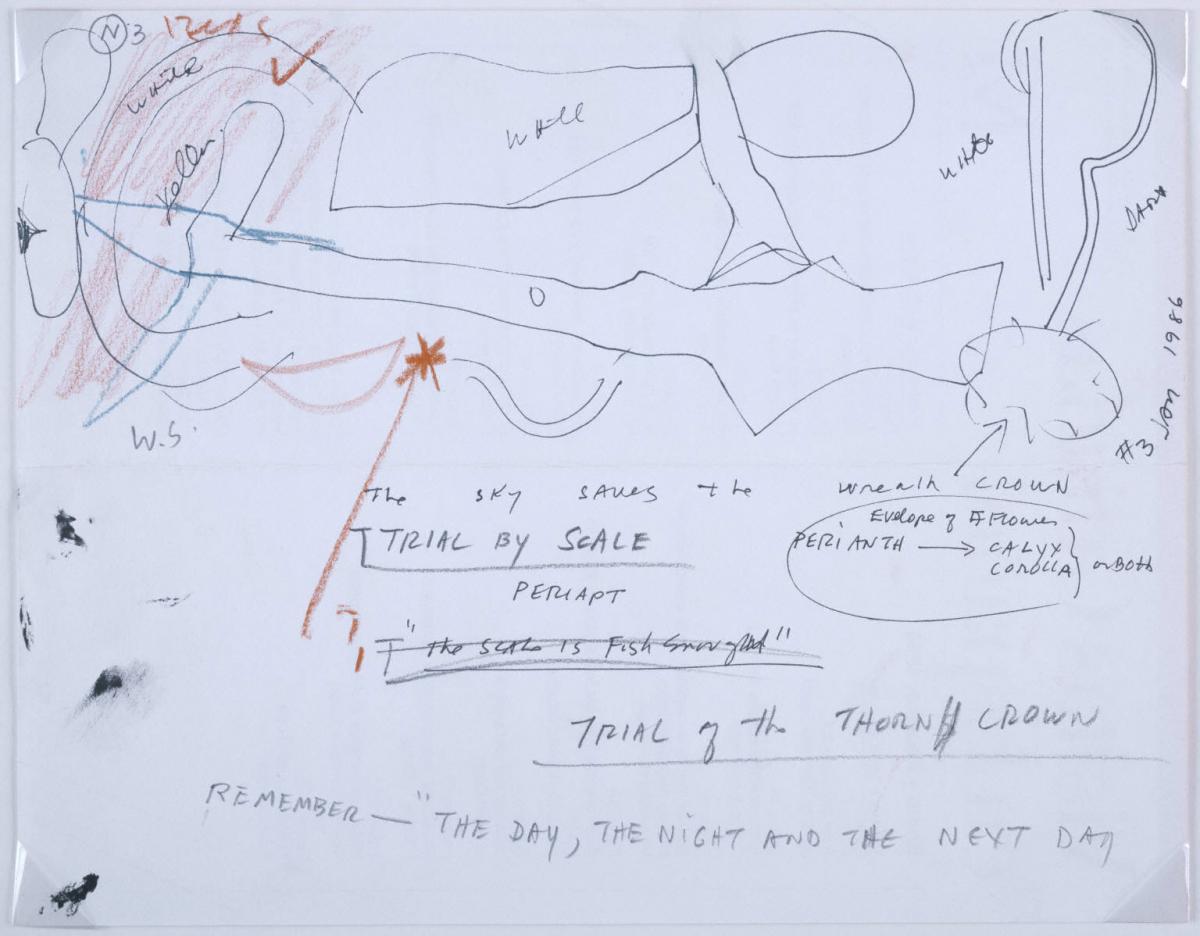 N 3 Reds
White
Yellow
White
White
DARK
#3 JAN 1986
W.S.
The SKY SAVES the
TRIAL BY SCALE
PERIAPT
"the scale is Fish Enough"
wreath CROWN
Evelope of A Flower
PERIANTH → CALYX
COROLLA } or BOTH
TRIAL of the THORN CROWN
REMEMBER — "THE DAY, THE NIGHT AND THE NEXT DAY